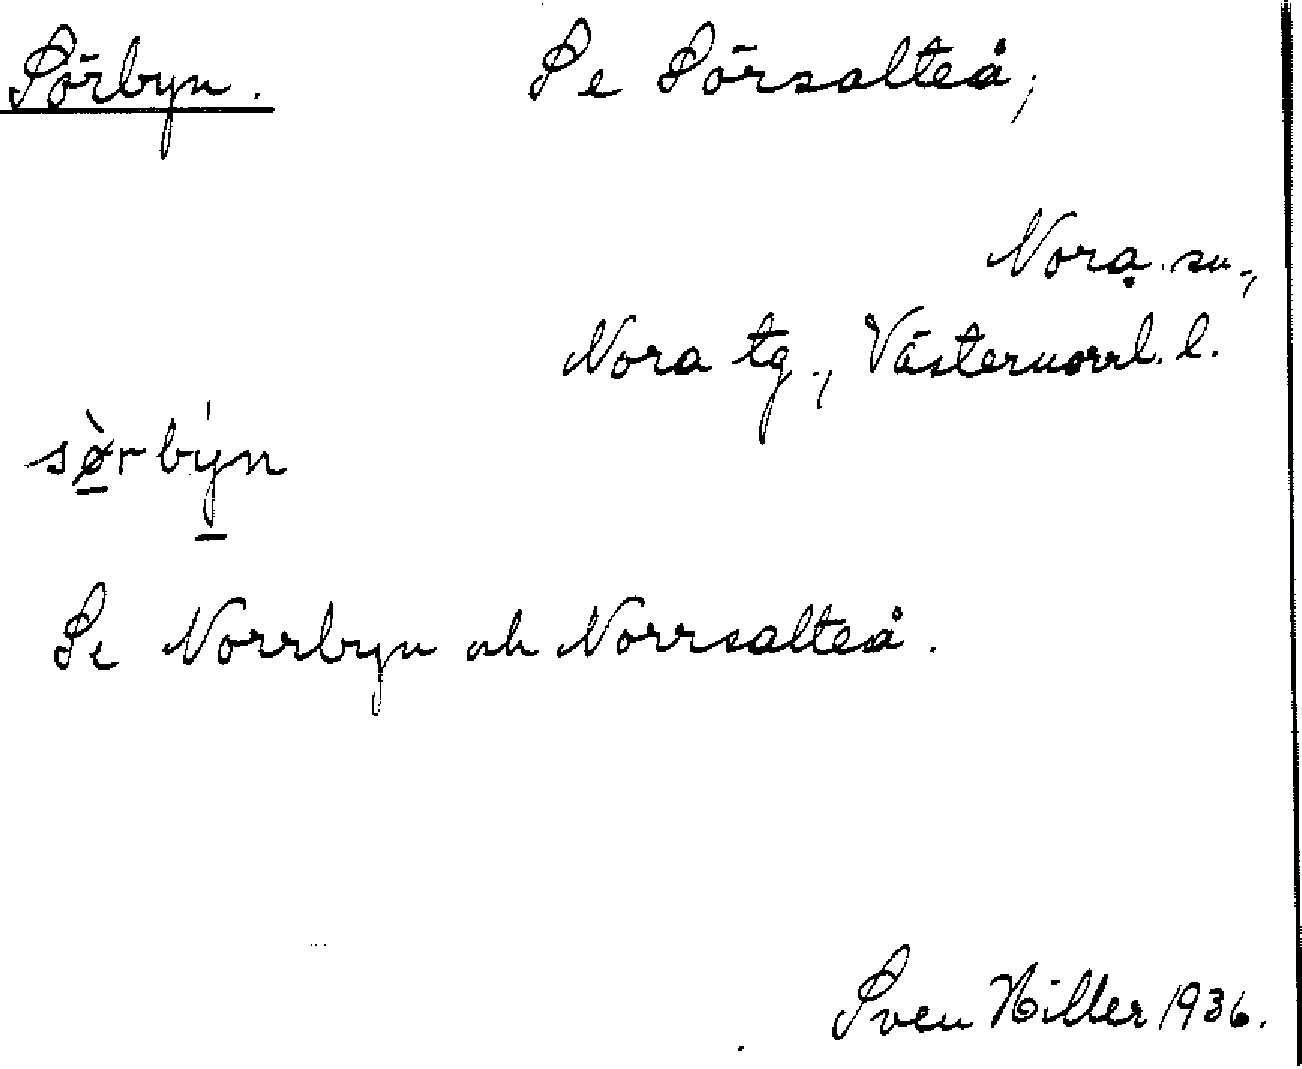 Sörbyn. Se Sörsalteå,
Nora sn.,
Nora tg., Västernorrl. l.
sø̀rbýn
Se Norrbyn och Norrsalteå.
Sven Hiller 1936.